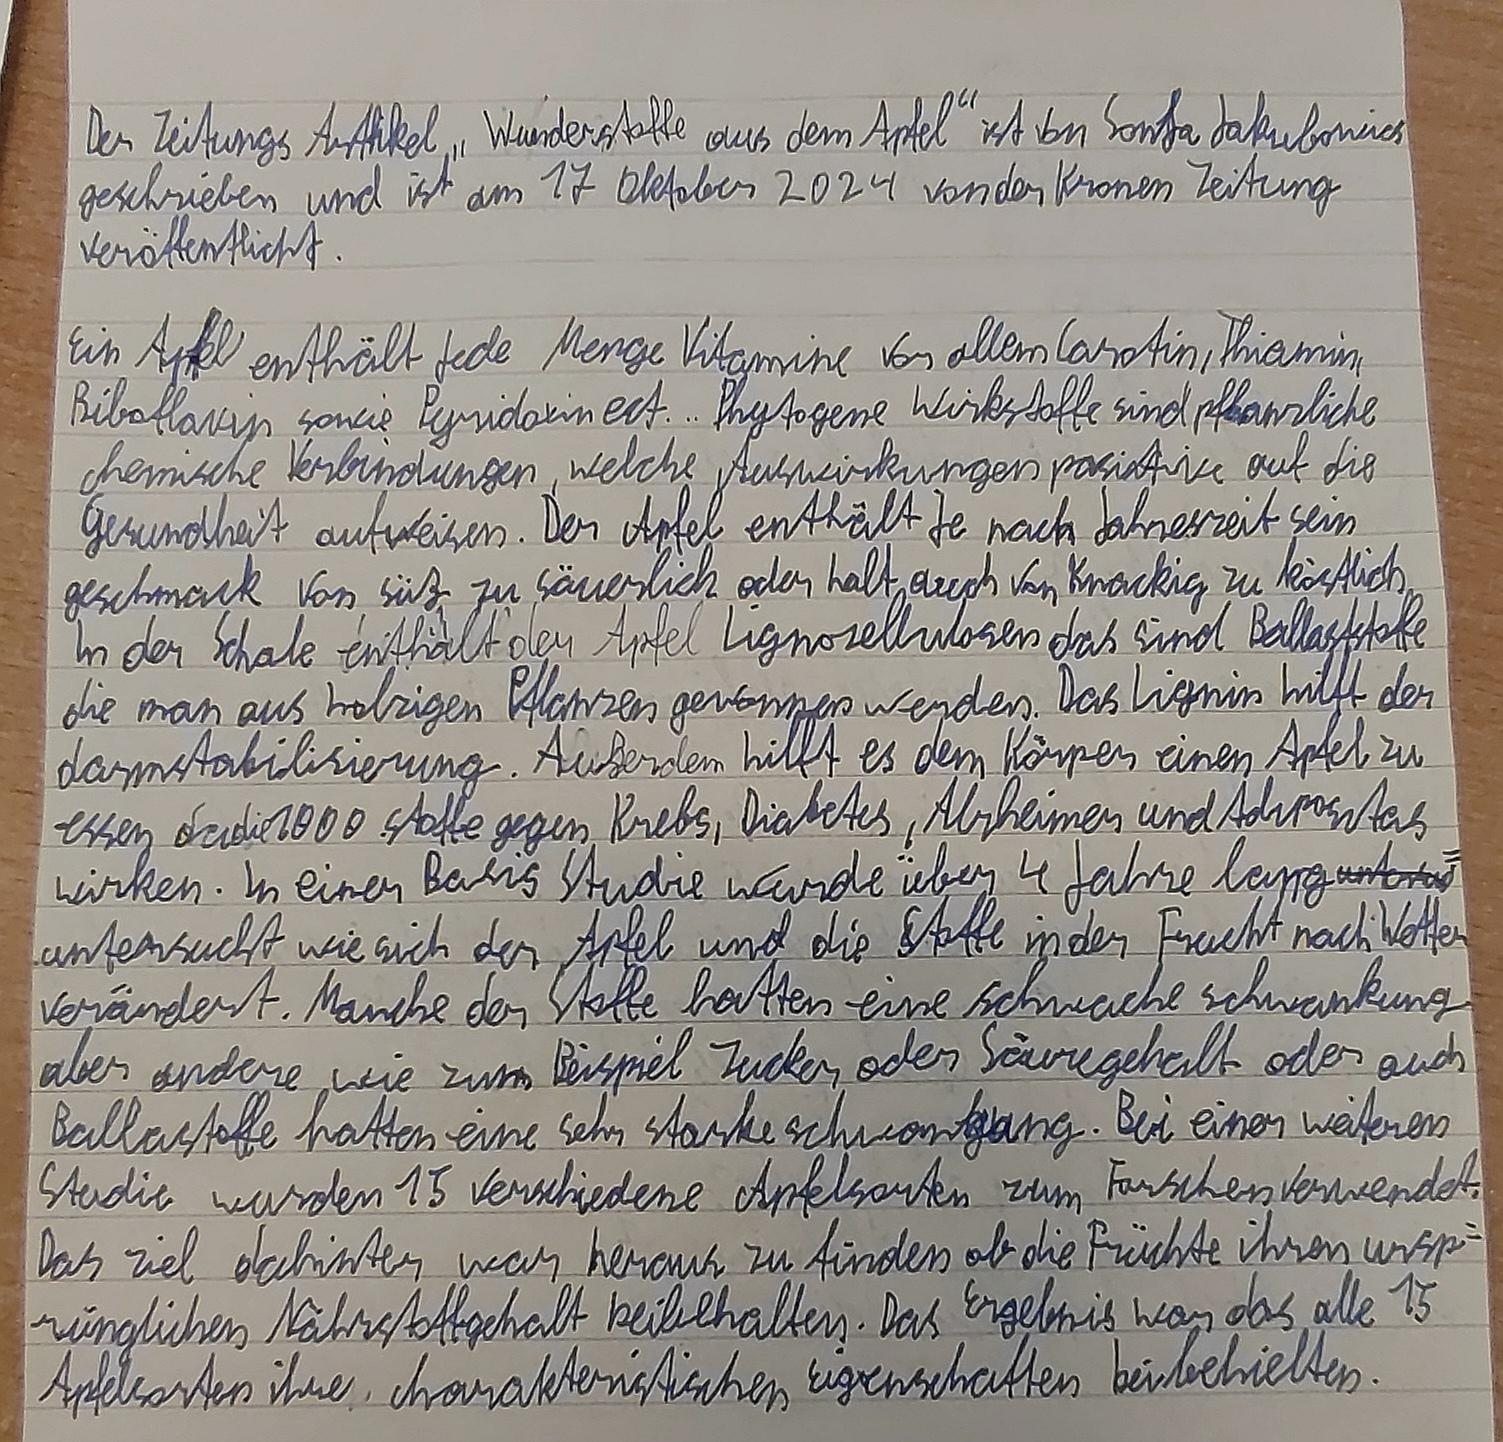 Der Zeitungs Arthikel „Wunderstoffe aus dem Apfel“ ist von Sonja Jakubovics
geschrieben und ist am 17 Oktober 2024 von der Kronen Zeitung
veröffentlicht.
Ein Apfel enthält jede Menge Vitamine vor allem Carotin, Thiamin,
Riboflavin sowie Pyridoxin ect... Phytogene Wirkstoffe sind pflanzliche
chemische Verbindungen, welche Auswirkungen auf die
Gesundheit aufweisen. Der Apfel enthält je nach Jahreszeit sein
geschmack von süß zu säuerlich oder halt auch von knackig zu köstlich.
In der Schale enthält der Apfel Lignozellulosen das sind Ballaststoffe
die man aus holzigen Pflanzen gewonnen werden. Das Lignin hilft der
darmstabilisierung. Außerdem hilft es dem Körper einen Apfel zu
essen da die 1000 stoffe gegen Krebs, Diabetes, Alzheimer und Adipositas
wirken. In einer Basis Studie wurde über 4 Jahre lang
untersucht wie sich der Apfel und die Stoffe in der Frucht nach Wetter
verändert. Manche der Stoffe hatten eine schwache schwankung
aber andere wie zum Beispiel Zucker oder Säuregehalt oder auch
Ballastoffe hatten eine sehr starke schwankung. Bei einer weiteren
Studie wurden 15 verschiedene Apfelsorten zum Forschen verwendet.
Das ziel dahinter war heraus zu fünden ob die Früchte ihren ursp=
rünglichen Nährstoffgehalt beibehalten. Das Ergebnis war das alle 15
Apfelsorten ihre charakteristischen Eigenschaften beibehielten.